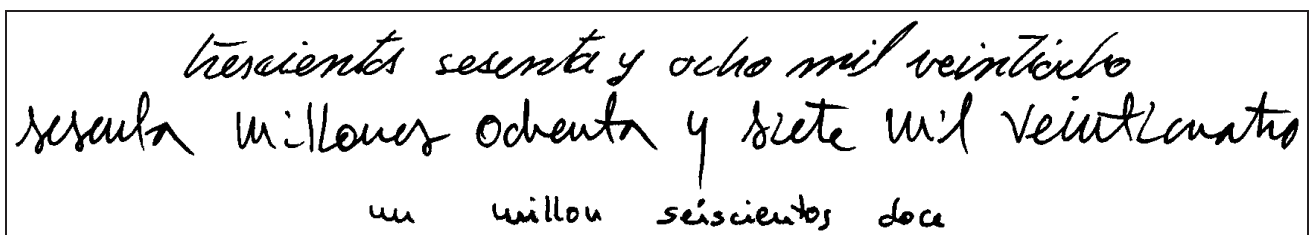 trescientos sesenta y ocho mil veintiocho
sesenta millones ochenta y siete mil veinticuatro
un millon seiscientos doce